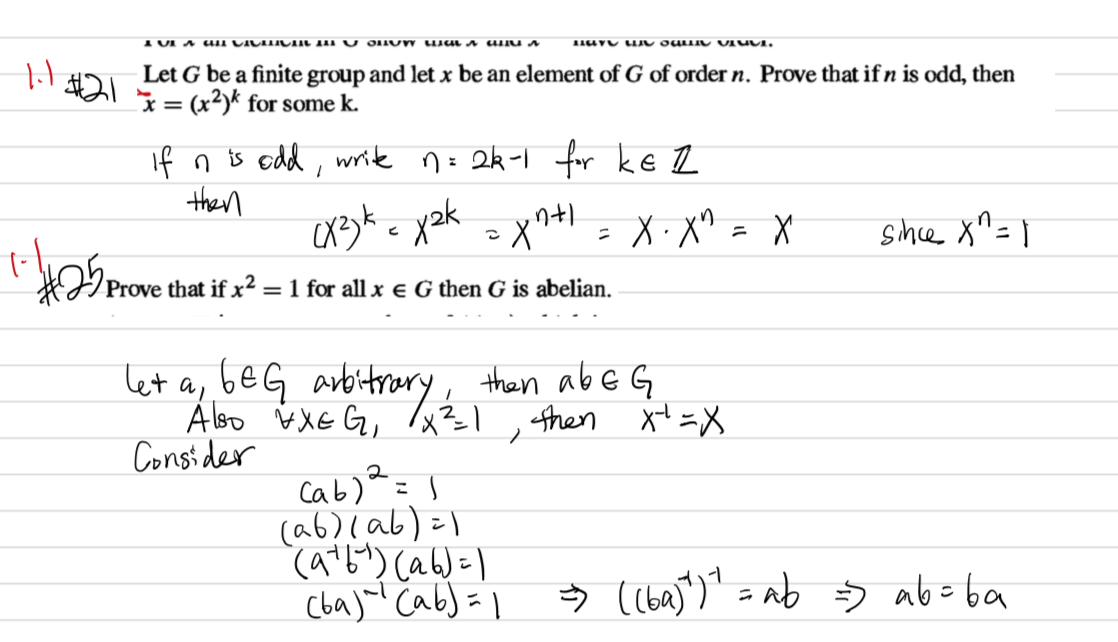 1.1 #21 Let G be a finite group and let x be an element of G of order n. Prove that if n is odd, then
x = (x²)ᵏ for some k.
If n is odd, write n = 2k-1 for k ∈ ℤ
then
(x²)ᵏ = x²ᵏ = xⁿ⁺¹ = x · xⁿ = x since xⁿ = 1
1.1 #25 Prove that if x² = 1 for all x ∈ G then G is abelian.
Let a, b ∈ G arbitrary, then ab ∈ G
Also ∀x ∈ G, x² = 1, then x⁻¹ = x
Consider
(ab)² = 1
(ab)(ab) = 1
(a⁻¹b⁻¹)(ab) = 1
(ba)⁻¹(ab) = 1 ⇒ ((ba)⁻¹)⁻¹ = ab ⇒ ab = ba